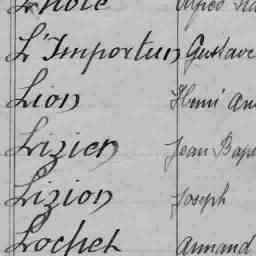 L'Importun Gustave
Lion Henri
Lizien Jean
Lizion Joseph
Lochet Armand